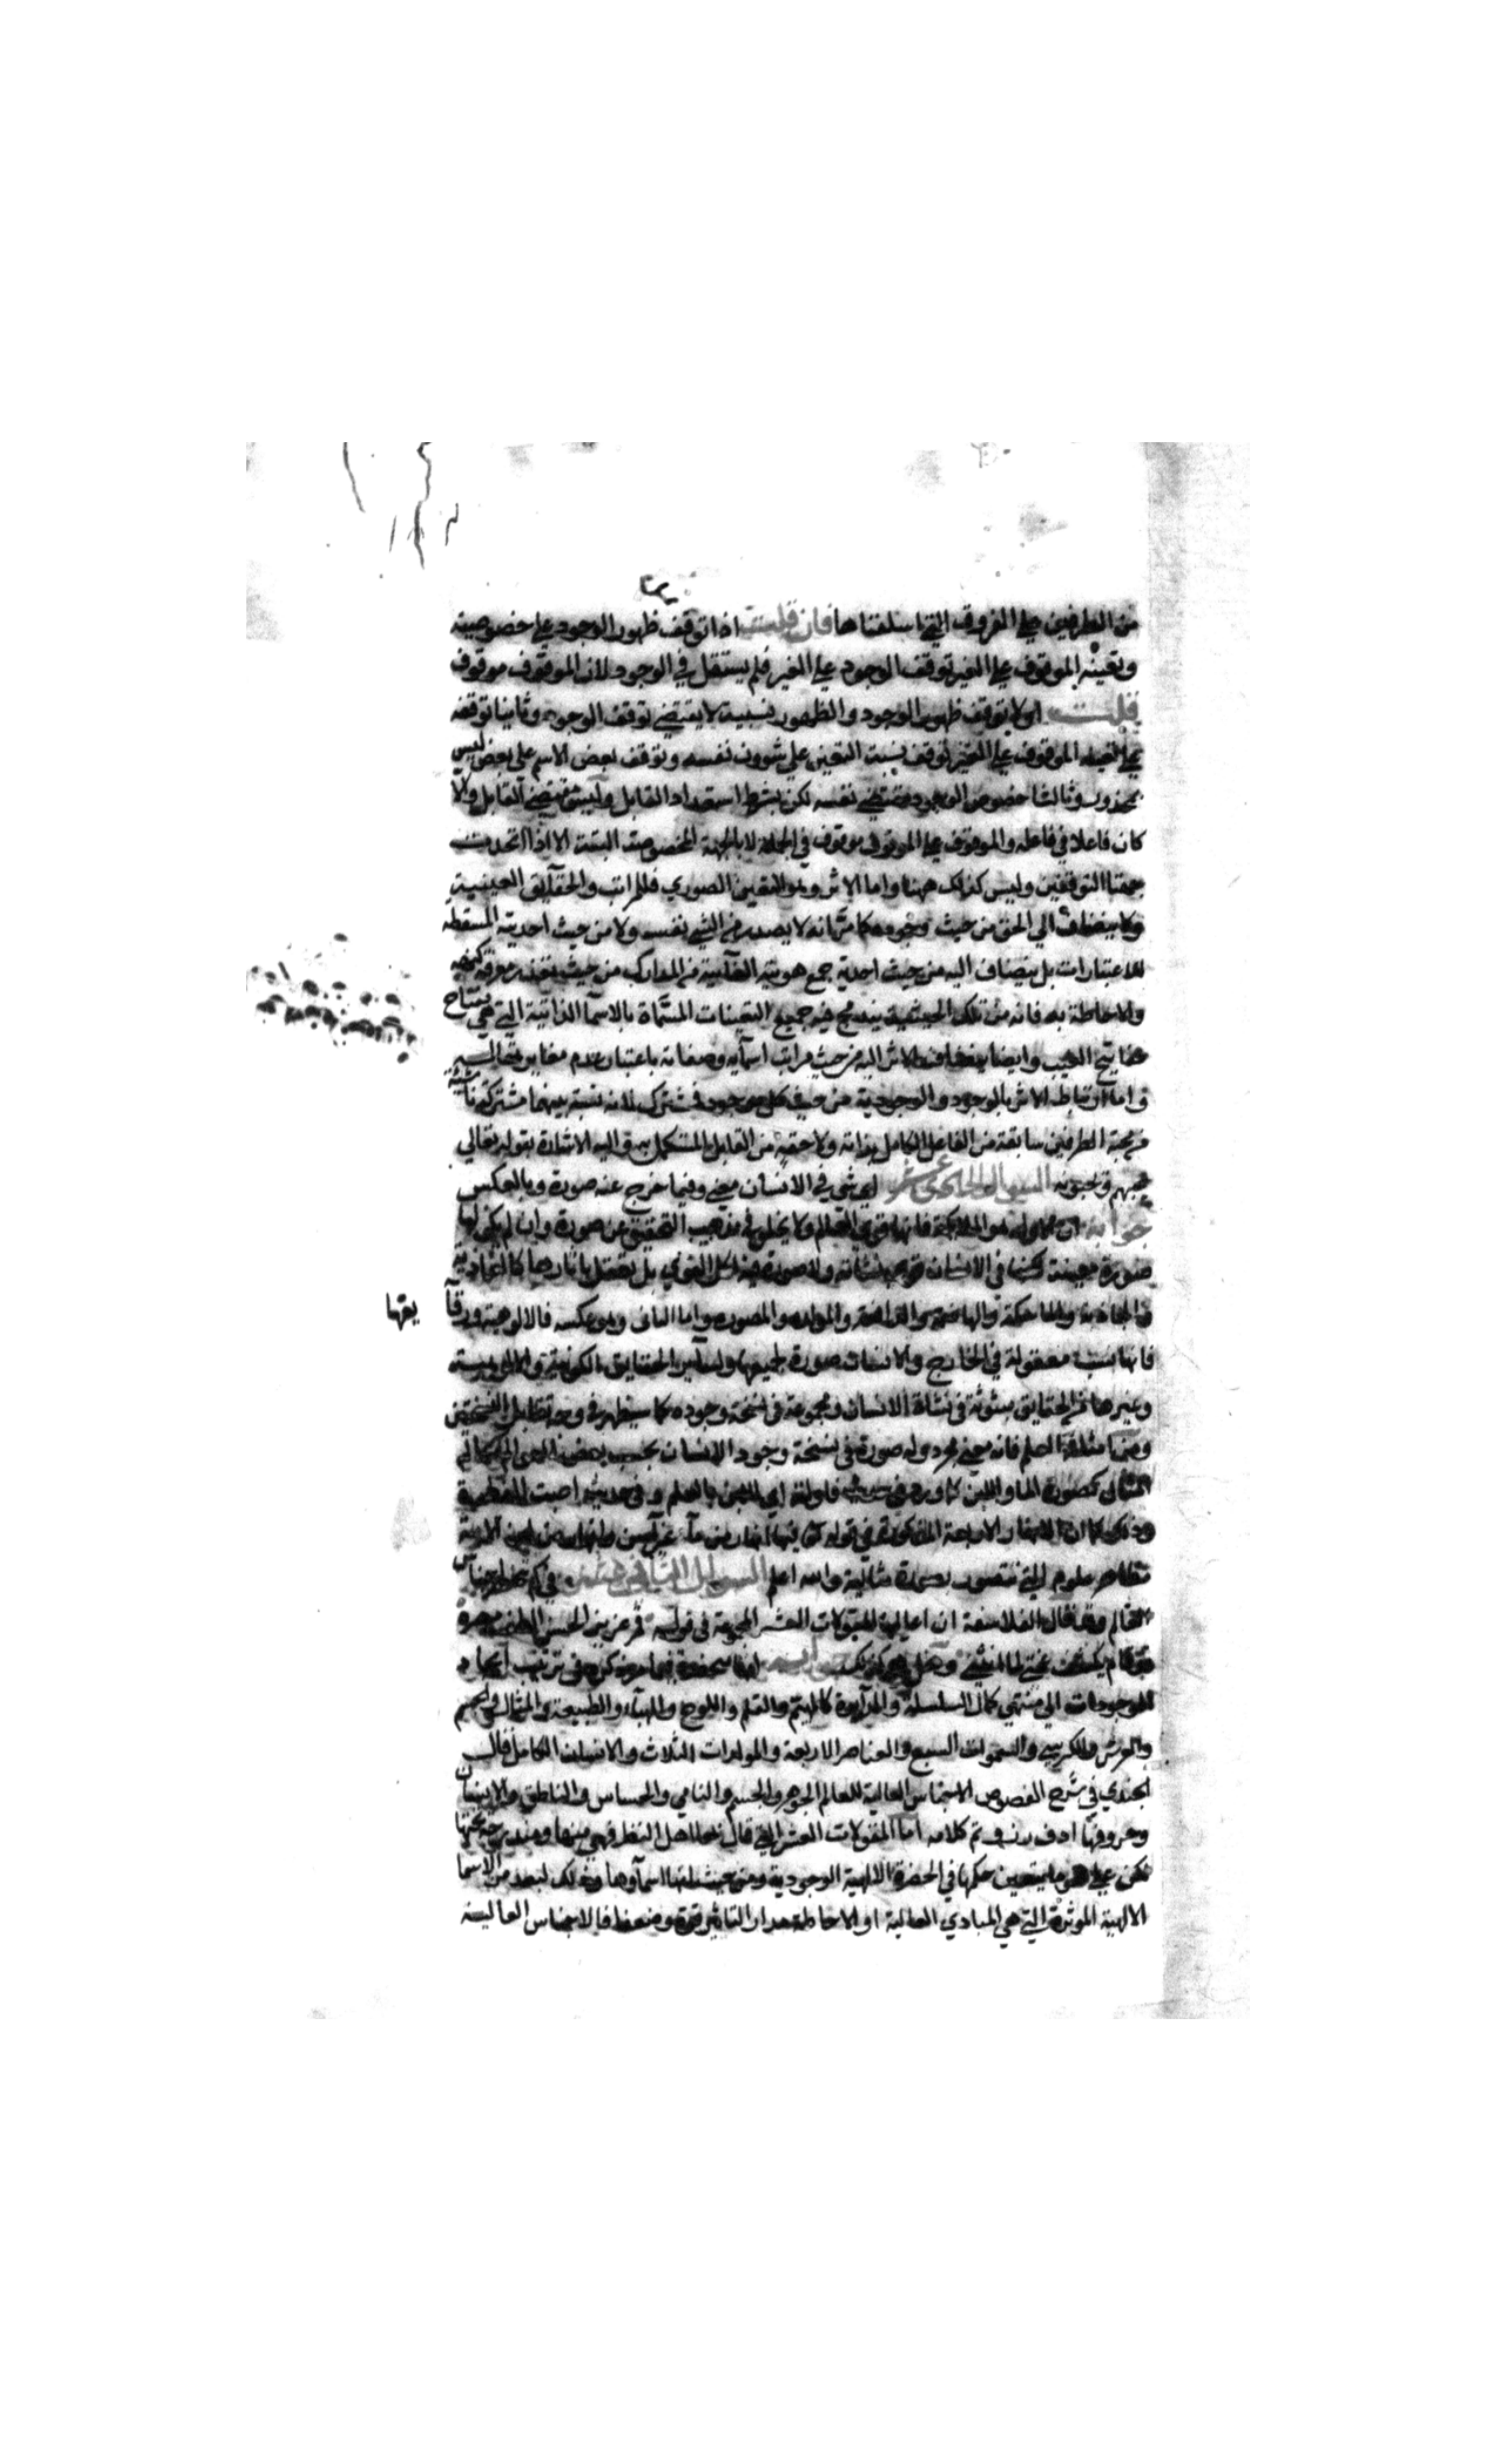 من الطرفين علي الفروق التي اسلفناها فان قلت اذا توقف ظهور الوجود علي خصوصيته
وتعينه الموقوف علي الغير توقف الوجود علي الغير فلم يستقل في الوجود لان الموقوف موقوف
قلت اولا توقف ظهور الوجود والظهور نسبية لا يقتضي توقف الوجود وثانيا توقفه
علي تعينه الموقوف علي الغير توقف نسبت التعين علي شوون نفسه وتوقف بعض الاسم علي بعض ليس
بمحذور وثالثا خصوص الوجود مقتضي نفسه لكن بشرط استعداد القابل وليس مقتضي القابل والا
كان فاعلا في فاعله والموقوف علي الموقوف موقوف في الجملة لا بالجهة المخصوصة البتة الا اذا اتحدت
جهتا التوقفين وليس كذلك ههنا واما الاثر وهو التعين الصوري فللمراتب والحقآيق العينية
ولا ينضاف الي الحق من حيث وجوده كما مر انه لا يصدر من الشي نفسه ولا من حيث احديته المسقطه
للاعتبارات بل ينضاف اليه من حيث احدية جمع هويته الغآيبة من المدارك من حيث تعذر معرفة كنهه
والاحاطة به فانه من تلك الحيثية يندمج فيه جميع التعينات المسماة بالاسمآ الذاتية التي هي مفتاح
مفاتيح الغيب وايضا ينضاف الاثر اليه من حيث مراتب اسمآيه وصفاته باعتبار عدم مغايرتها
واما ارتباط الاثر بالوجود والوجودية من حيث كل موجود فمشترك لانه نسبة بينهما مشتركة ناشئة
من محبة الطرفين سابقة من الفاعل الكامل بذاته ولاحقة من القابل المستكمل به واليه الاشارة بقوله تعالي
يحبهم ويحبونه السوال الحادي عشر اي شي في الانسان معني وفيما خرج عنه صورة وبالعكس
جوابه ان الاول هو الملايكة فانها قوي العالم ولا يخلو في مذهب التحقيق عن صورة وان لم يكن لها
صورة معينة ولكنها في الانسان قوي نشاته ولا صورة لهذه القوي بل تعقل باثارها كالغاذية
والجاذبة والماسكة والهاضمة والدافعة والمولده والمصوره واما الثاني وهو عكسه فالالوهية ورقآ يقها
فانها نسبة معقولة في الخارج والانسان صورة لجميعها ولسآير الحقايق الكونية والالوهية
وغيرها من الحقايق مبثوثة في نشاة الانسان ومجموعة في نسخة وجوده كما سيظهر في وجه تقابل النسختين
ومن امثلته العلم فانه معني مجرد وله صورة في نسخة وجود الانسان بحسب بعض
المثال كصورة المآ واللبن كما ورد في حديث فاولته اي اللبن بالعلم وفي حديث اصبت الفطرة
وذكر كما ان الانهار الاربعة المذكورة في قوله تع فيها انهار من مآ غير آسن وانهار من لبن الآية
مظاهر علوم التي تتصور بصورة مثالية والله اعلم السوال الثاني عشر في كم تنحصر اجناس
العالم وقد قال الفلاسفة ان اعاليها المقولات العشر المجموعة في قوله قمر عزيز الحسن الطف مصره
لو قام يكشف غمتي لما انثني وهل هو كذلك جوابه انها منحصرة فيما مر ذكره في ترتيب ايجاد
الموجودات الي منتهي كمال السلسلة والدآيرة كالهيم والقلم واللوح والهبآء والطبيعة والمثال والجسم
والعرش والكرسي والسموات السبع والعناصر الاربعة والمولدات الثلاث والانسان الكامل قال
الجندي في شرح الفصوص الاجناس العالية للعالم الجوهر والجسم والنامي والحساس والناطق والانسان
وحروفها ادف رز و تم كلامه اما المقولات العشر التي قال بها اهل النظر فهي منها ومندرجة تحتها
لكن علي نحو ما يتعين حكمها في الحضرة الالهية الوجودية ومن حيث انها اسمآوها وذلك لبعد من الاسما
الالهية الموثرة التي هي المبادي العالية او الاحاطة مدار التاثير قوة وضعفا فالاجناس العالية